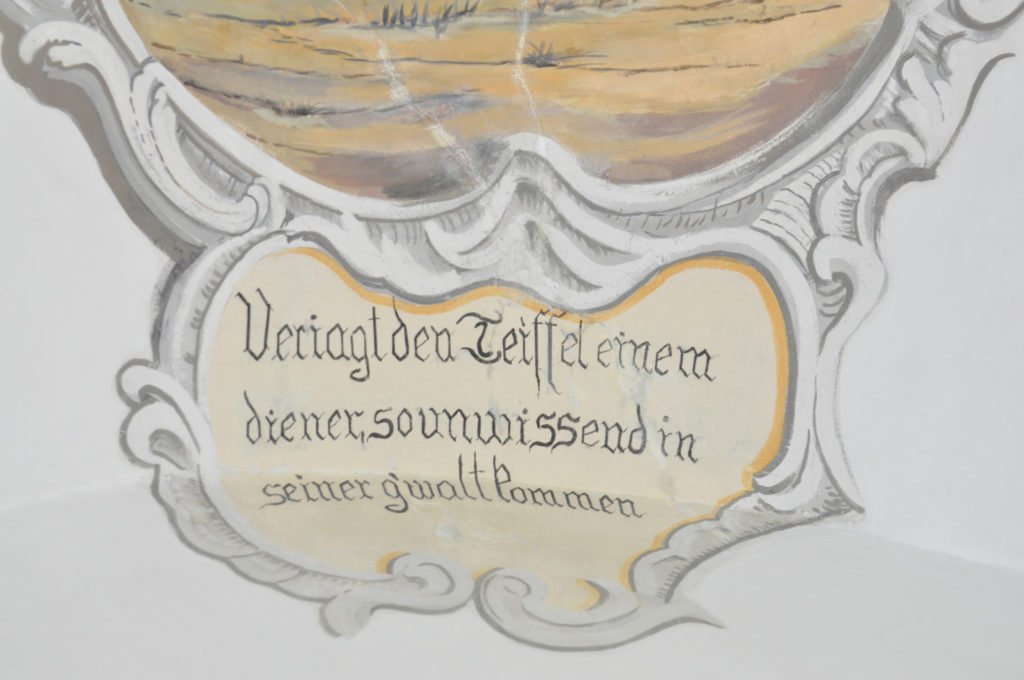 Veriagt den Teiffel einem
diener, so unwissend in
seiner g'walt kommen